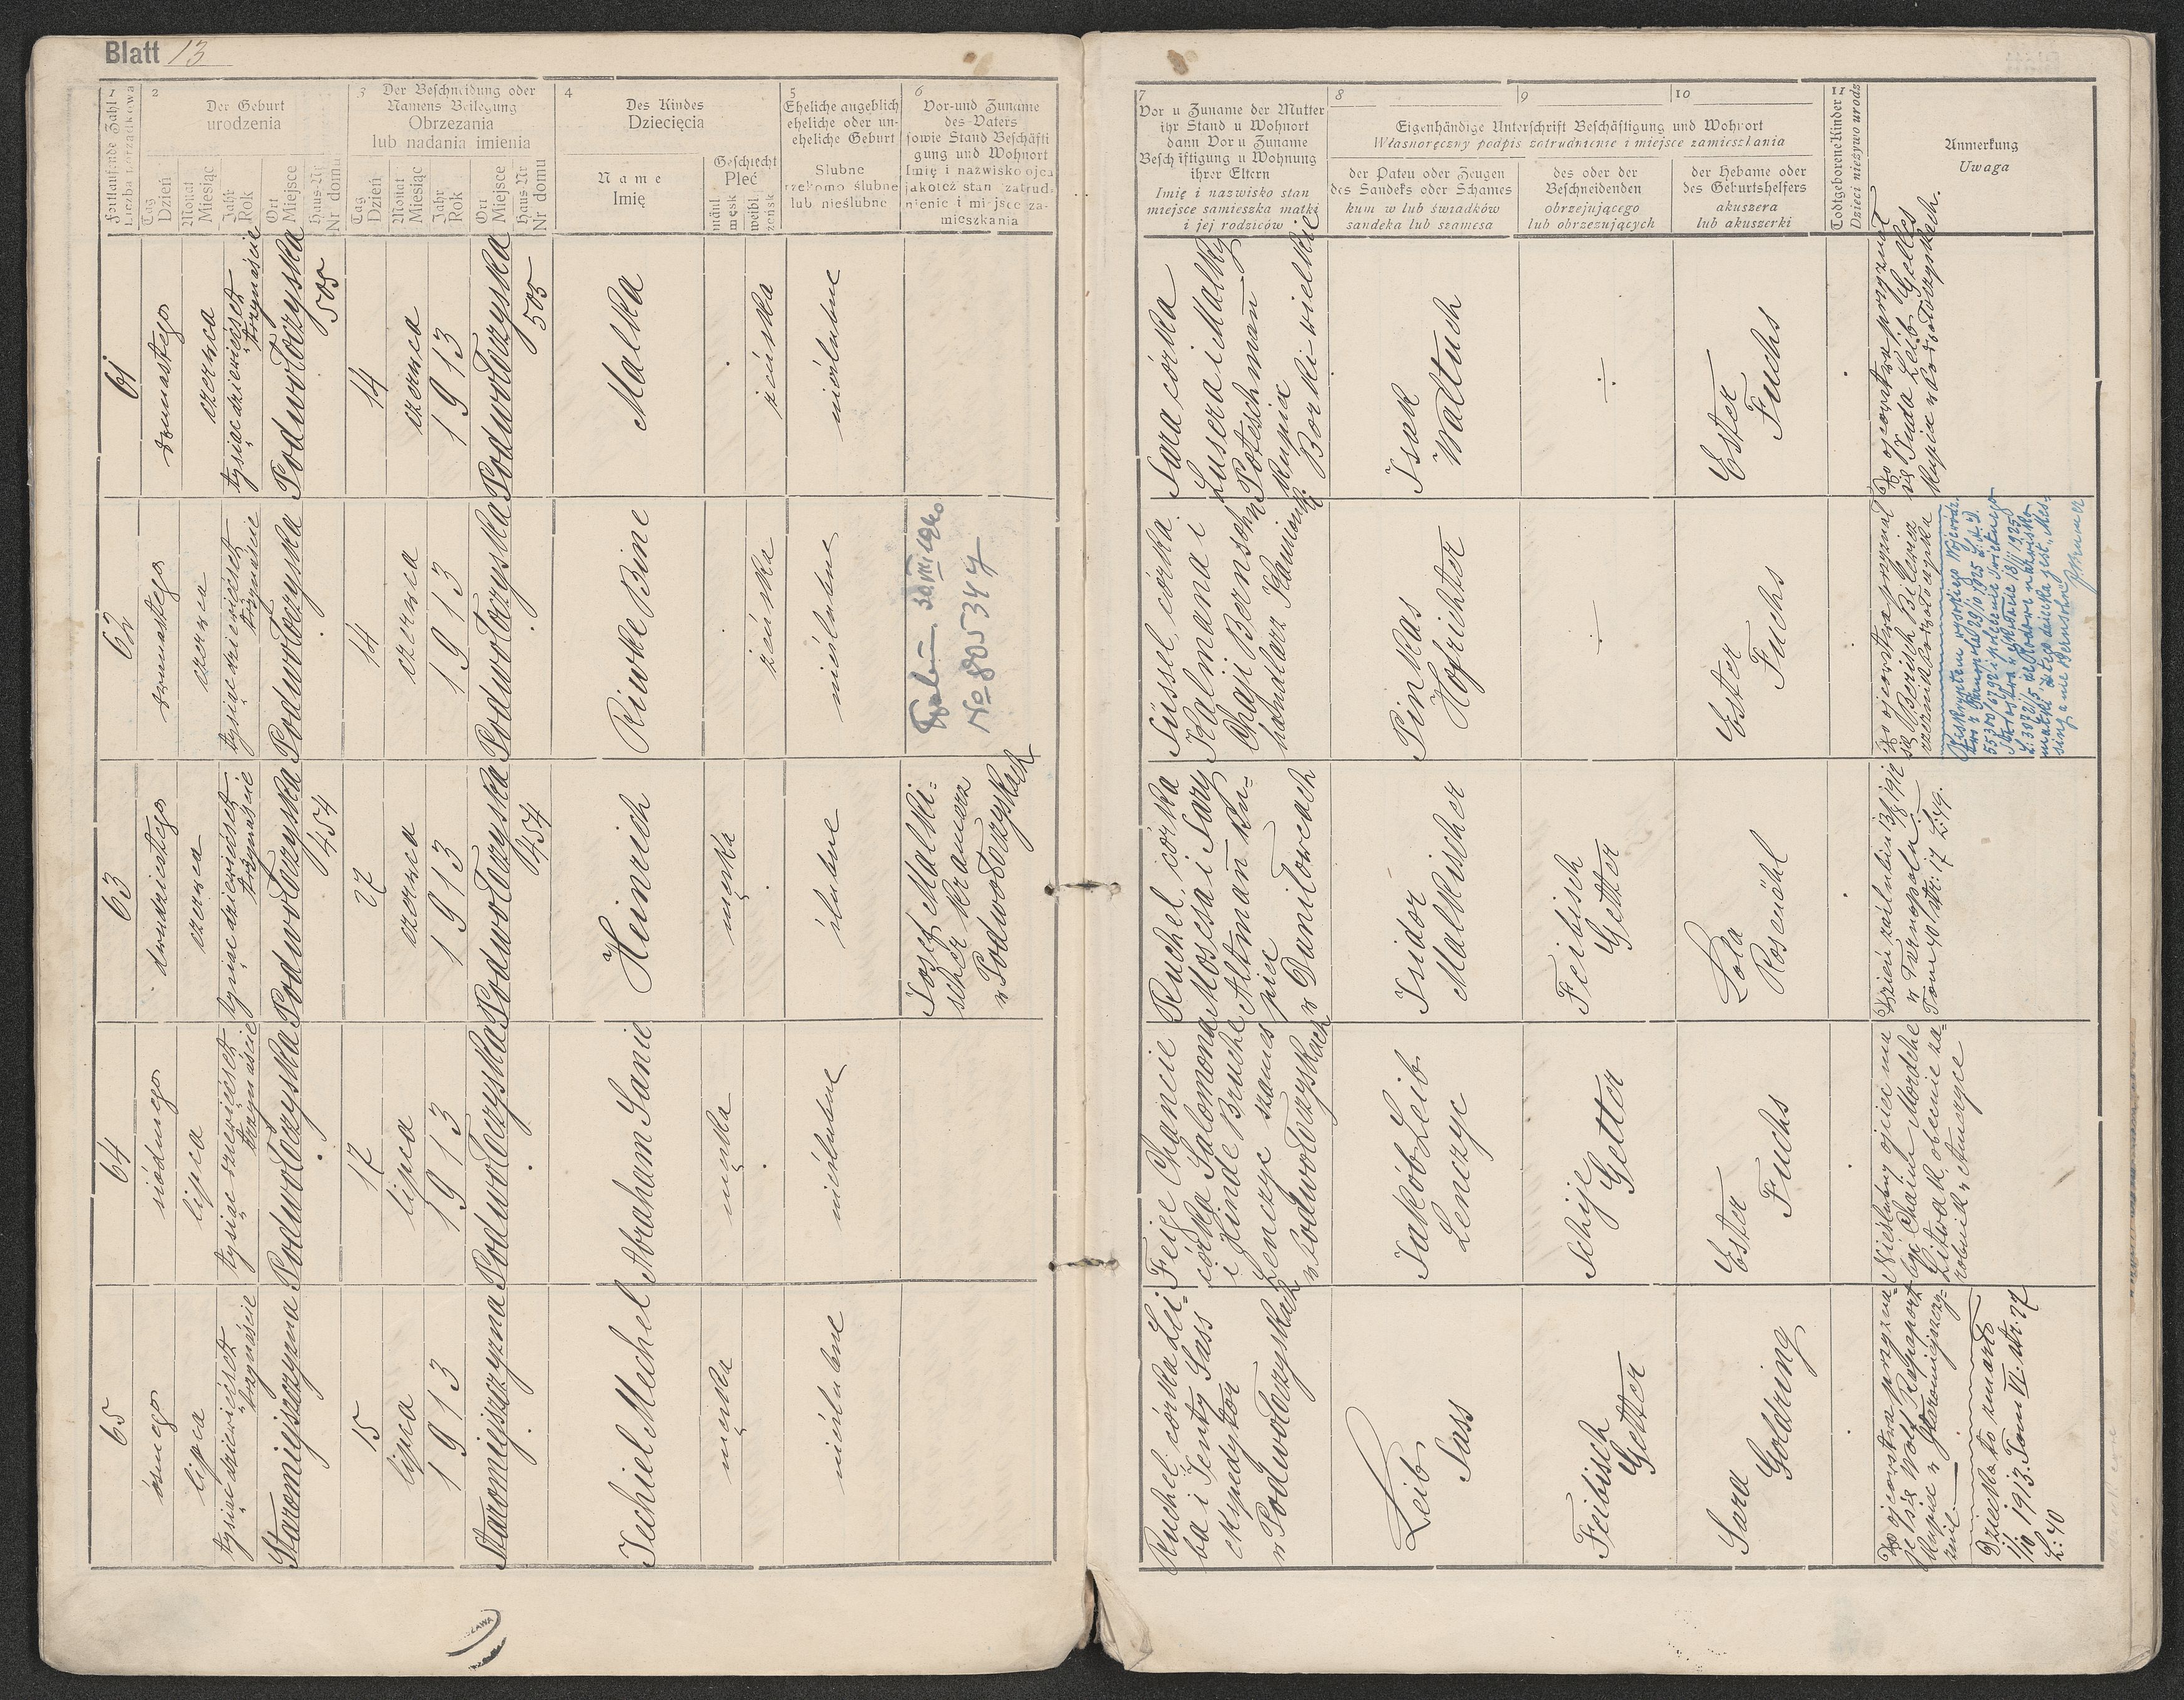 Blatt 13
1
Fortlaufende Zahl
Liczba porządkowa
2
Der Geburt
urodzenia
Tag
Dzień
Monat
Miesiąc
Jahr
Rok
Ort
Miejsce
Haus-Nr
Nr domu
3
Der Beschneidung oder
Namens Beilegung
Obrzezania
lub nadania imienia
Tag
Dzień
Monat
Miesiąc
Jahr
Rok
Ort
Miejsce
Haus-Nr
Nr domu
4
Des Kindes
Dziecięcia
Name
Imię
Geschlecht
Płeć
männl
męsk
weibl.
żeńsk
5
Eheliche angeblich
eheliche oder un-
eheliche Geburt
Ślubne
rzekomo ślubne
lub nieślubne
6
Vor-und Zuname
des Vaters
sowie Stand Beschäfti
gung und Wohnort
Imię i nazwisko ojca
jakoteż stan zatrud-
nienie i miejsce za-
mieszkania
7
Vor u Zuname der Mutter
ihr Stand u Wohnort
dann Vor u Zuname
Beschäftigung u Wohnung
ihrer Eltern
Imię i nazwisko stan
miejsce samieszka matki
i jej rodziców
8
9
10
Eigenhändige Unterschrift Beschäftigung und Wohnort
Własnoręczny podpis zatrudnienie i miejsce zamieszkania
der Paten oder Zeugen
des Sandeks oder Schames
kum w lub świadków
sandeka lub szamesa
des oder der
Beschneidenden
obrzejującego
lub obrzezujących
der Hebame oder
des Geburtshelfers
akuszera
lub akuszerki
11
Todtgeborene Kinder
Dzieci nieżywo urodz
Anmerkung
Uwaga
61
dwunastego
czerwca
tysiąc dziewięćset
trzynaście
Podwołoczyska
505
14
czerwca
1913
Podwołoczyska
505
Malka
żeńska
nieślubne
Sara, córka
Lusera i Malky
Poteschman
kupiec
Borki wielkie
Isak
Waltuch
÷
Ester
Fuchs
Do ojcostwa przyznał
się Juda Leib Gelles
kupiec w Podwołoczyskach.
62
dwunastego
czerwca
tysiąc dziewięćset
trzynaście
Podwołoczyska
14
czerwca
1913
Podwołoczyska
Riwke Bine
żeńska
nieślubne
No 805344
Süssel, córka
Kalmana i
Chaji Bernsohn
handlarz
Pinkas
Hofrichter
÷
Ester
Fuchs
Do ojcostwa przyznał
się Berisch Bilewicz
rzeźnik Podwołoczyska
63
dwudziestego
czerwca
tysiąc dziewięćset
trzynaście
Podwołoczyska
454
27
czerwca
1913
Podwołoczyska
454
Heinrich
męska
ślubne
Josef Malki-
scher kramarz
w Podwołoczyskach
Ruchel, córka
Mosesa i Sary
Altman ku-
piec
w Daniłowcach
Isidor
Malkischer
Feibisch
Getter
Lola
Rosenöhl
w Tarnopolu
64
siódmego
lipca
tysiąc dziewięćset
trzynaście
Podwołoczyska
17
lipca
1913
Podwołoczyska
Abraham Sanie
męska
nieślubne
Feige Chancie
córka Salomona
i Hinde Bruche
Lenczyc szames
w Podwołoczyskach
Jakób Leib
Lenczyc
Schije
Getter
Ester
Fuchs
Chaim Mordche
Litwak, obecnie za-
robnik w Ameryce
65
ósmego
lipca
tysiąc dziewięćset
trzynaście
Staromiejszczyzna
15
lipca
1913
Staromiejszczyzna
Jechiel Mechel
męska
nieślubne
Ruchel córka Lei-
ba i Jenty Sass
ekspedytor
w Podwołoczyskach
Leib
Sass
Feibisch
Getter
Sara
Goldring
Do ojcostwa przyzna-
je się Wolf Rapaport
kupiec w Staromiejszczy-
znie
Dziecko to zmarło
11/10 1913. Tom VI. str. 27
L: 40